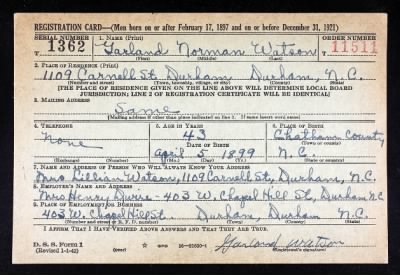 REGISTRATION CARD—(Men born on or after February 17, 1897 and on or before December 31, 1921)
SERIAL NUMBER 1. NAME (Print) ORDER NUMBER
T 1362 Garland Norman Watson T 11511
(First) (Middle) (Last)
2. PLACE OF RESIDENCE (Print)
1109 Carnell St, Durham Durham, N.C.
(Number and street) (Town, township, village, or city) (County) (State)
[THE PLACE OF RESIDENCE GIVEN ON THE LINE ABOVE WILL DETERMINE LOCAL BOARD
JURISDICTION; LINE 2 OF REGISTRATION CERTIFICATE WILL BE IDENTICAL]
3. MAILING ADDRESS
Same
[Mailing address if other than place indicated on line 2. If same insert word same]
4. TELEPHONE 5. AGE IN YEARS 6. PLACE OF BIRTH
43 Chatham County,
None DATE OF BIRTH (Town or county)
April 5 1899 N.C.
(Exchange) (Number) (Mo.) (Day) (Yr.) (State or country)
7. NAME AND ADDRESS OF PERSON WHO WILL ALWAYS KNOW YOUR ADDRESS
Mrs Lillian Watson, 1109 Carnell St, Durham, N.C.
8. EMPLOYER'S NAME AND ADDRESS
Mrs Henry - 403 W. Chapel Hill St, Durham N.C
9. PLACE OF EMPLOYMENT OR BUSINESS
403 W. Chapel Hill St. Durham, Durham N.C.
(Number and street or R. F. D. number) (Town) (County) (State)
I AFFIRM THAT I HAVE VERIFIED ABOVE ANSWERS AND THAT THEY ARE TRUE.
D. S. S. Form 1
(Revised 1-1-42) (over) 16-21630-1 Garland Watson
(Registrant's signature)